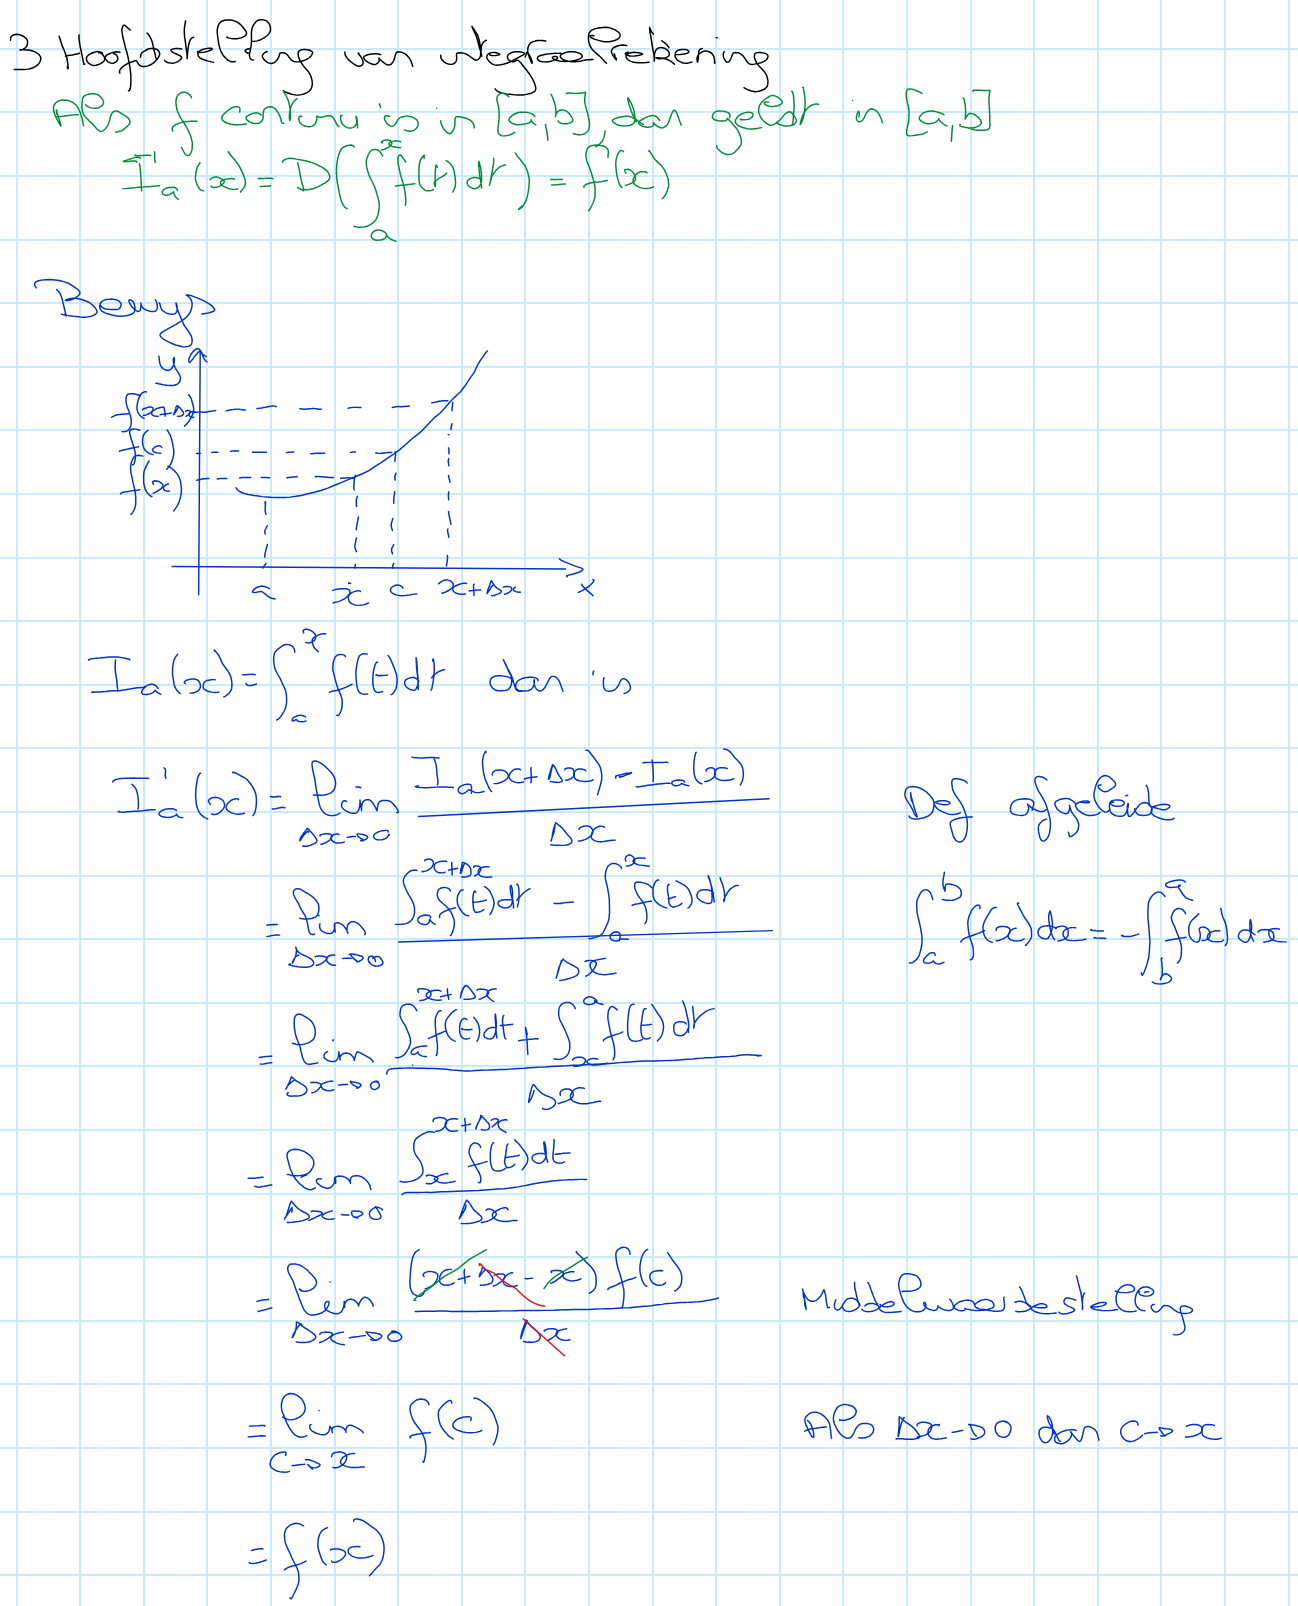 3 Hoofdstelling van integraalrekening
Als f continu is in [a,b], dan geldt in [a,b]
I'ₐ(x) = D(∫ₐˣ f(t)dt) = f(x)
Bewijs
y
f(x+Δx)
f(c)
f(x)
a x c x+Δx x
Iₐ(x) = ∫ₐˣ f(t)dt dan is
I'ₐ(x) = lim_{Δx→0} (Iₐ(x+Δx) - Iₐ(x)) / Δx Def afgeleide
= lim_{Δx→0} (∫ₐ^{x+Δx} f(t)dt - ∫ₐˣ f(t)dt) / Δx ∫_a^b f(x)dx = -∫_b^a f(x)dx
= lim_{Δx→0} (∫ₐ^{x+Δx} f(t)dt + ∫ₓᵃ f(t)dt) / Δx
= lim_{Δx→0} (∫ₓ^{x+Δx} f(t)dt) / Δx
= lim_{Δx→0} ((x+Δx-x) f(c)) / Δx Middelwaardestelling
= lim_{c→x} f(c) Als Δx→0 dan c→x
= f(x)